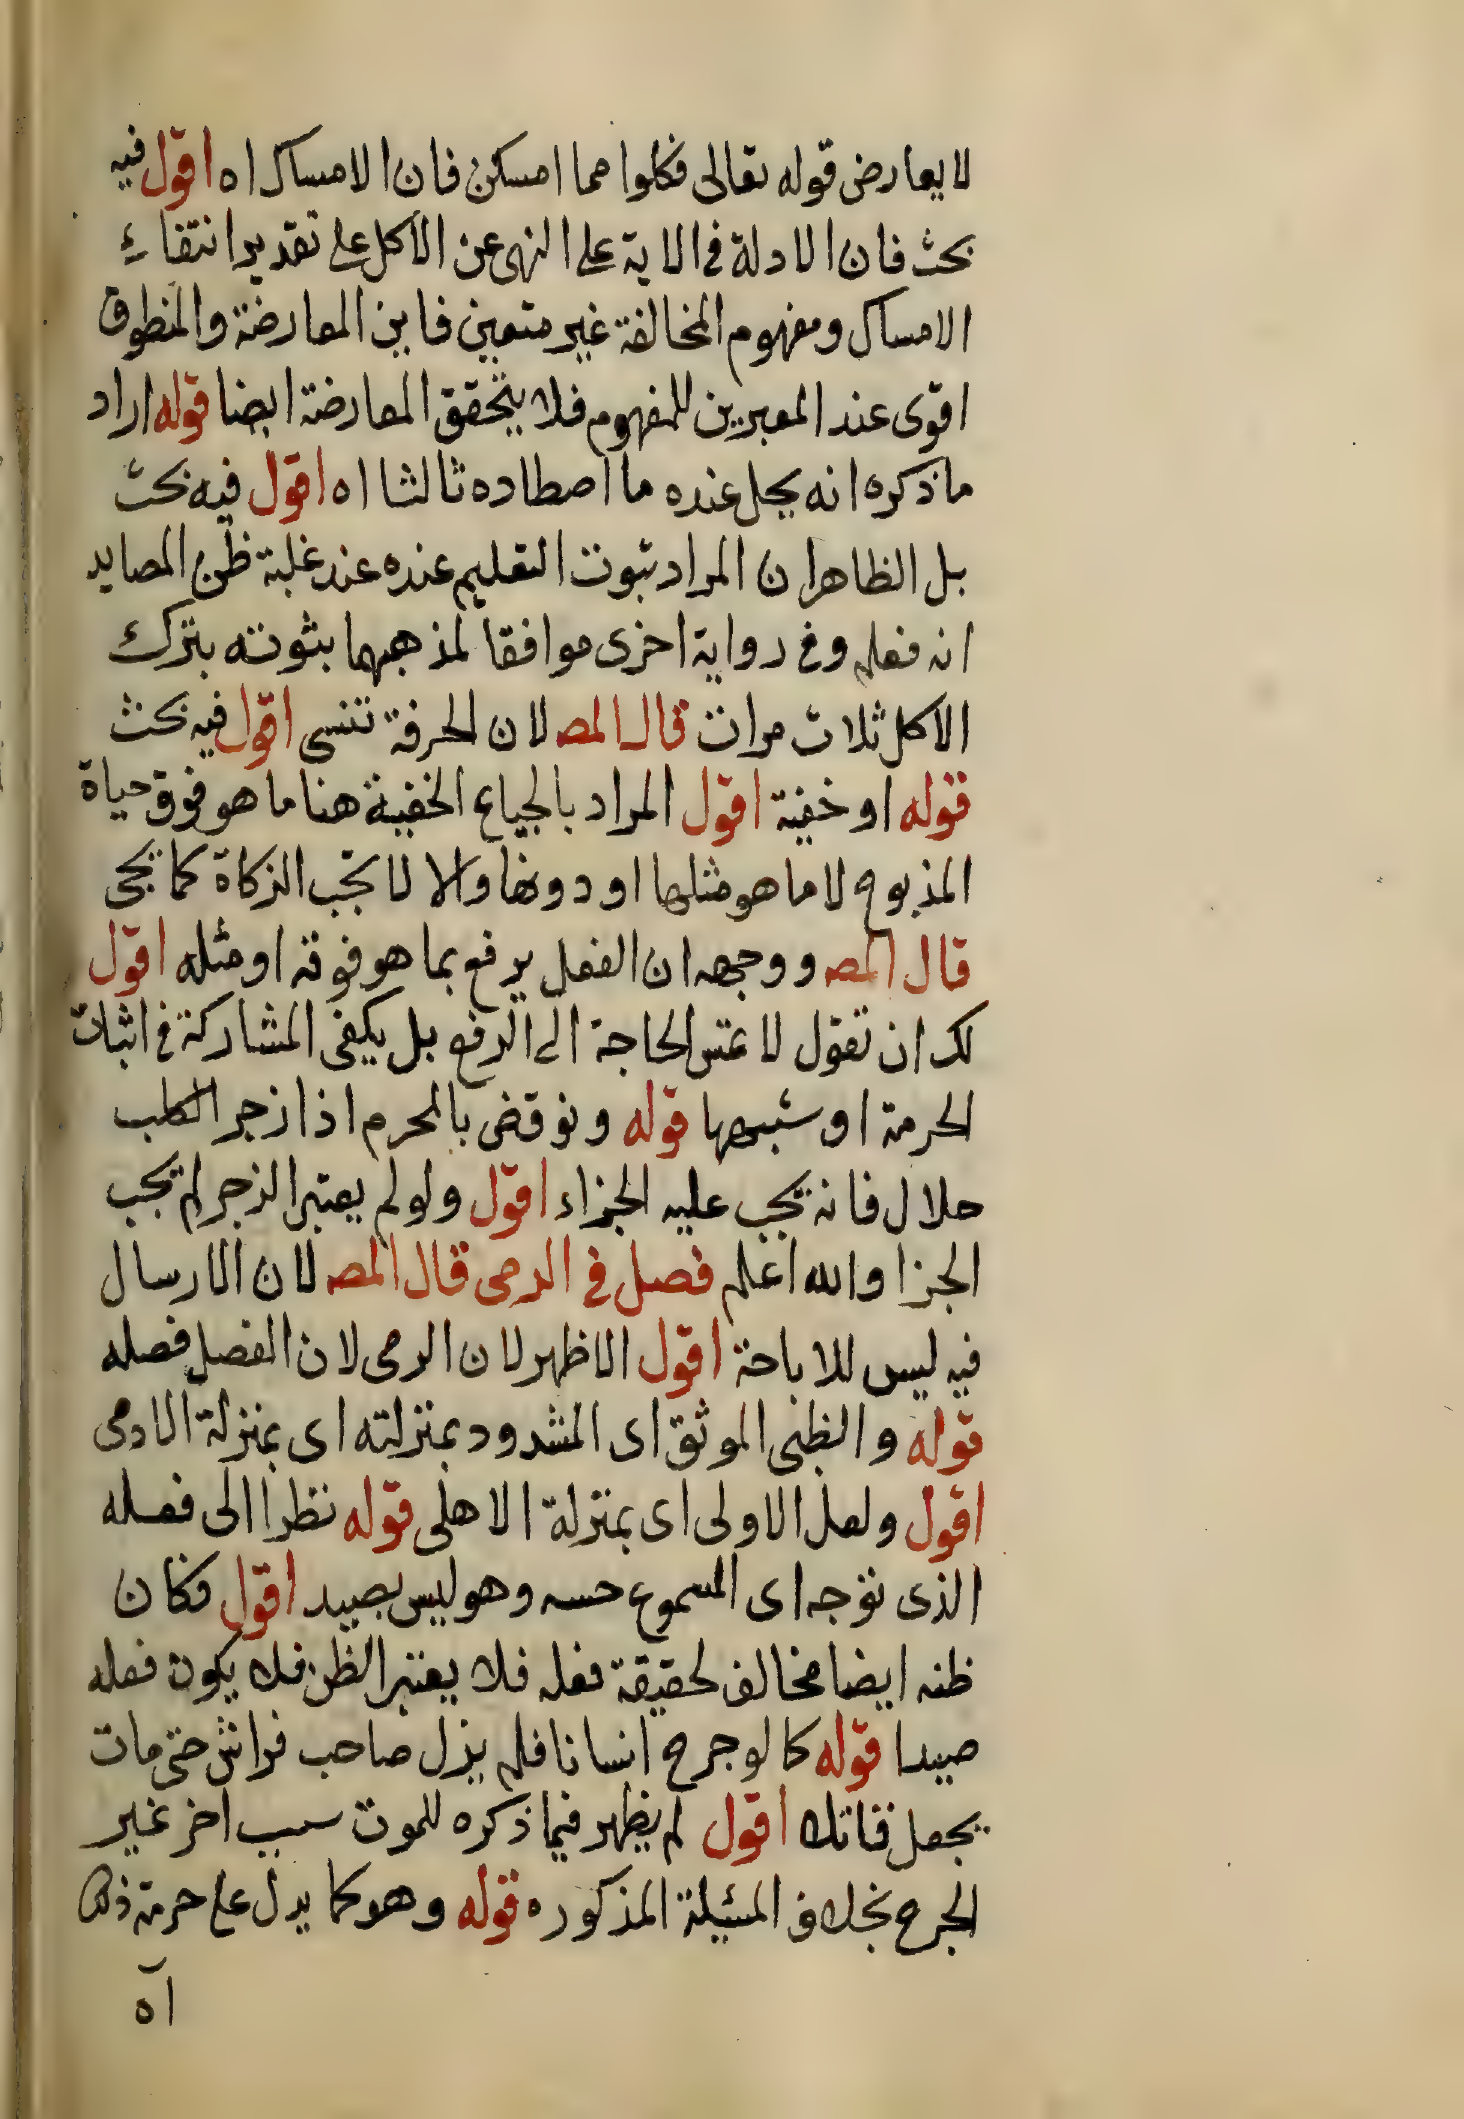 لا يعارض قوله تعالى فكلوا مما امسكن فان الامساك اه اقول فيه
بحث فان الادلة في الاية على النهى عن الاكل على تقدير انتفاء
الامساك ومفهوم المخالفة غير متعين فاين المعارضة والمنطوق
اقوى عند المعبرين للمفهوم فلا يتحقق المعارضة ايضا قوله اراد
ما ذكره انه يحل عنده ما اصطاده ثالثا اه اقول فيه بحث
بل الظاهر ان المراد ثبوت التعليم عنده عند غلبة ظن المصايد
انه فعلم وفي رواية اخرى موافقا لمذهبهما بثوته بترك
الاكل ثلاث مرات قال المصـ لان الحرفة تنسى اقول فيه بحث
قوله او خفية اقول المراد بالجياع الخفية هنا ما هو فوق حياة
المذبوح لا ما هو مثلها او دونها والا لا تجب الزكاة كما تجى
قال المصـ ووجهه ان الفعل يرفع بما هو فوقه او مثله اقول
لك ان تقول لا تمس الحاجة الى الرفع بل يكفى المشاركة في اثبات
الحرمة او شبهها قوله ونوقض بالمحرم اذا زجر الكلب
حلال فانه تجب عليه الجزاء اقول ولو لم يعتبر الزجر لم تجب
الجزا والله اعلم فصل في الرمى قال المصـ لان الارسال
فيه ليس للاباحة اقول الاظهر لان الرمى لان الفصل فصله
قوله والظبى الموثق اى المشدود بمنزلته اى بمنزلة الادمى
اقول ولعل الاولى اى بمنزلة الاهلى قوله نظرا الى فعله
الذى توجه اى المسموع حسه وهو ليس بصيد اقول فكان
ظنه ايضا مخالف لحقيقة فعله فلا يعتبر الظن فلا يكون فعله
صيدا قوله كما لو جرح انسانا فلم يزل صاحب فراش حتى مات
يجعل قاتلا اقول لم يظهر فيما ذكره للموت سبب اخر غير
الجرح بخلاف المسئلة المذكوره قوله وهو كما يدل على حرمة ذلك
آه